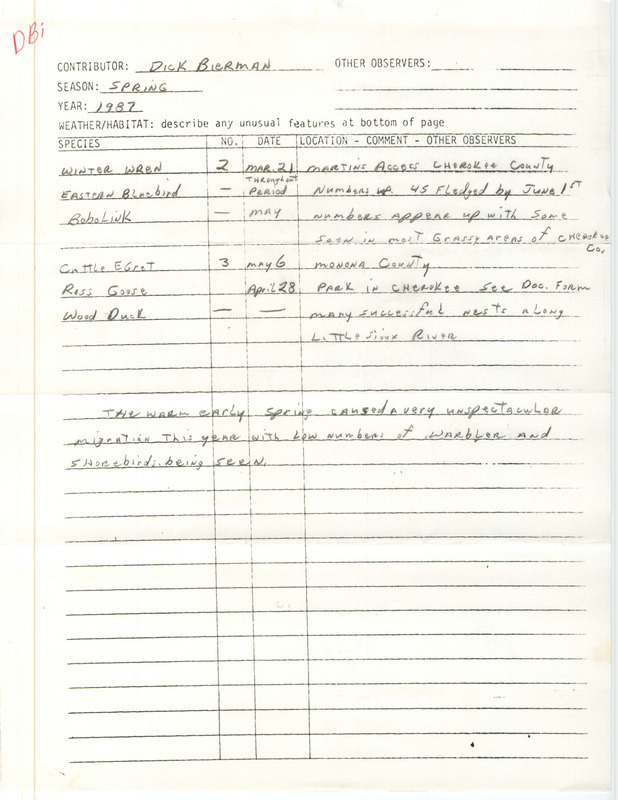 DBi
CONTRIBUTOR: Dick Bierman OTHER OBSERVERS:
SEASON: Spring
YEAR: 1987
WEATHER/HABITAT: describe any unusual features at bottom of page
SPECIES NO. DATE LOCATION - COMMENT - OTHER OBSERVERS
Winter Wren 2 Mar. 21 Martins Access Cherokee County
Eastern Bluebird — Throughout Period Numbers up. 45 Fledged by June 1st
BoboLink — May numbers appear up with some
seen in most Grassy areas of Cherokee Co.
Cattle Egret 3 May 6 Monona County
Ross Goose April 28 Park in Cherokee See Doc. Form
Wood Duck — — many successful nests along
Little Sioux River
The warm early spring caused a very unspectacular
migration this year with low numbers of warbler and
shorebirds being seen.